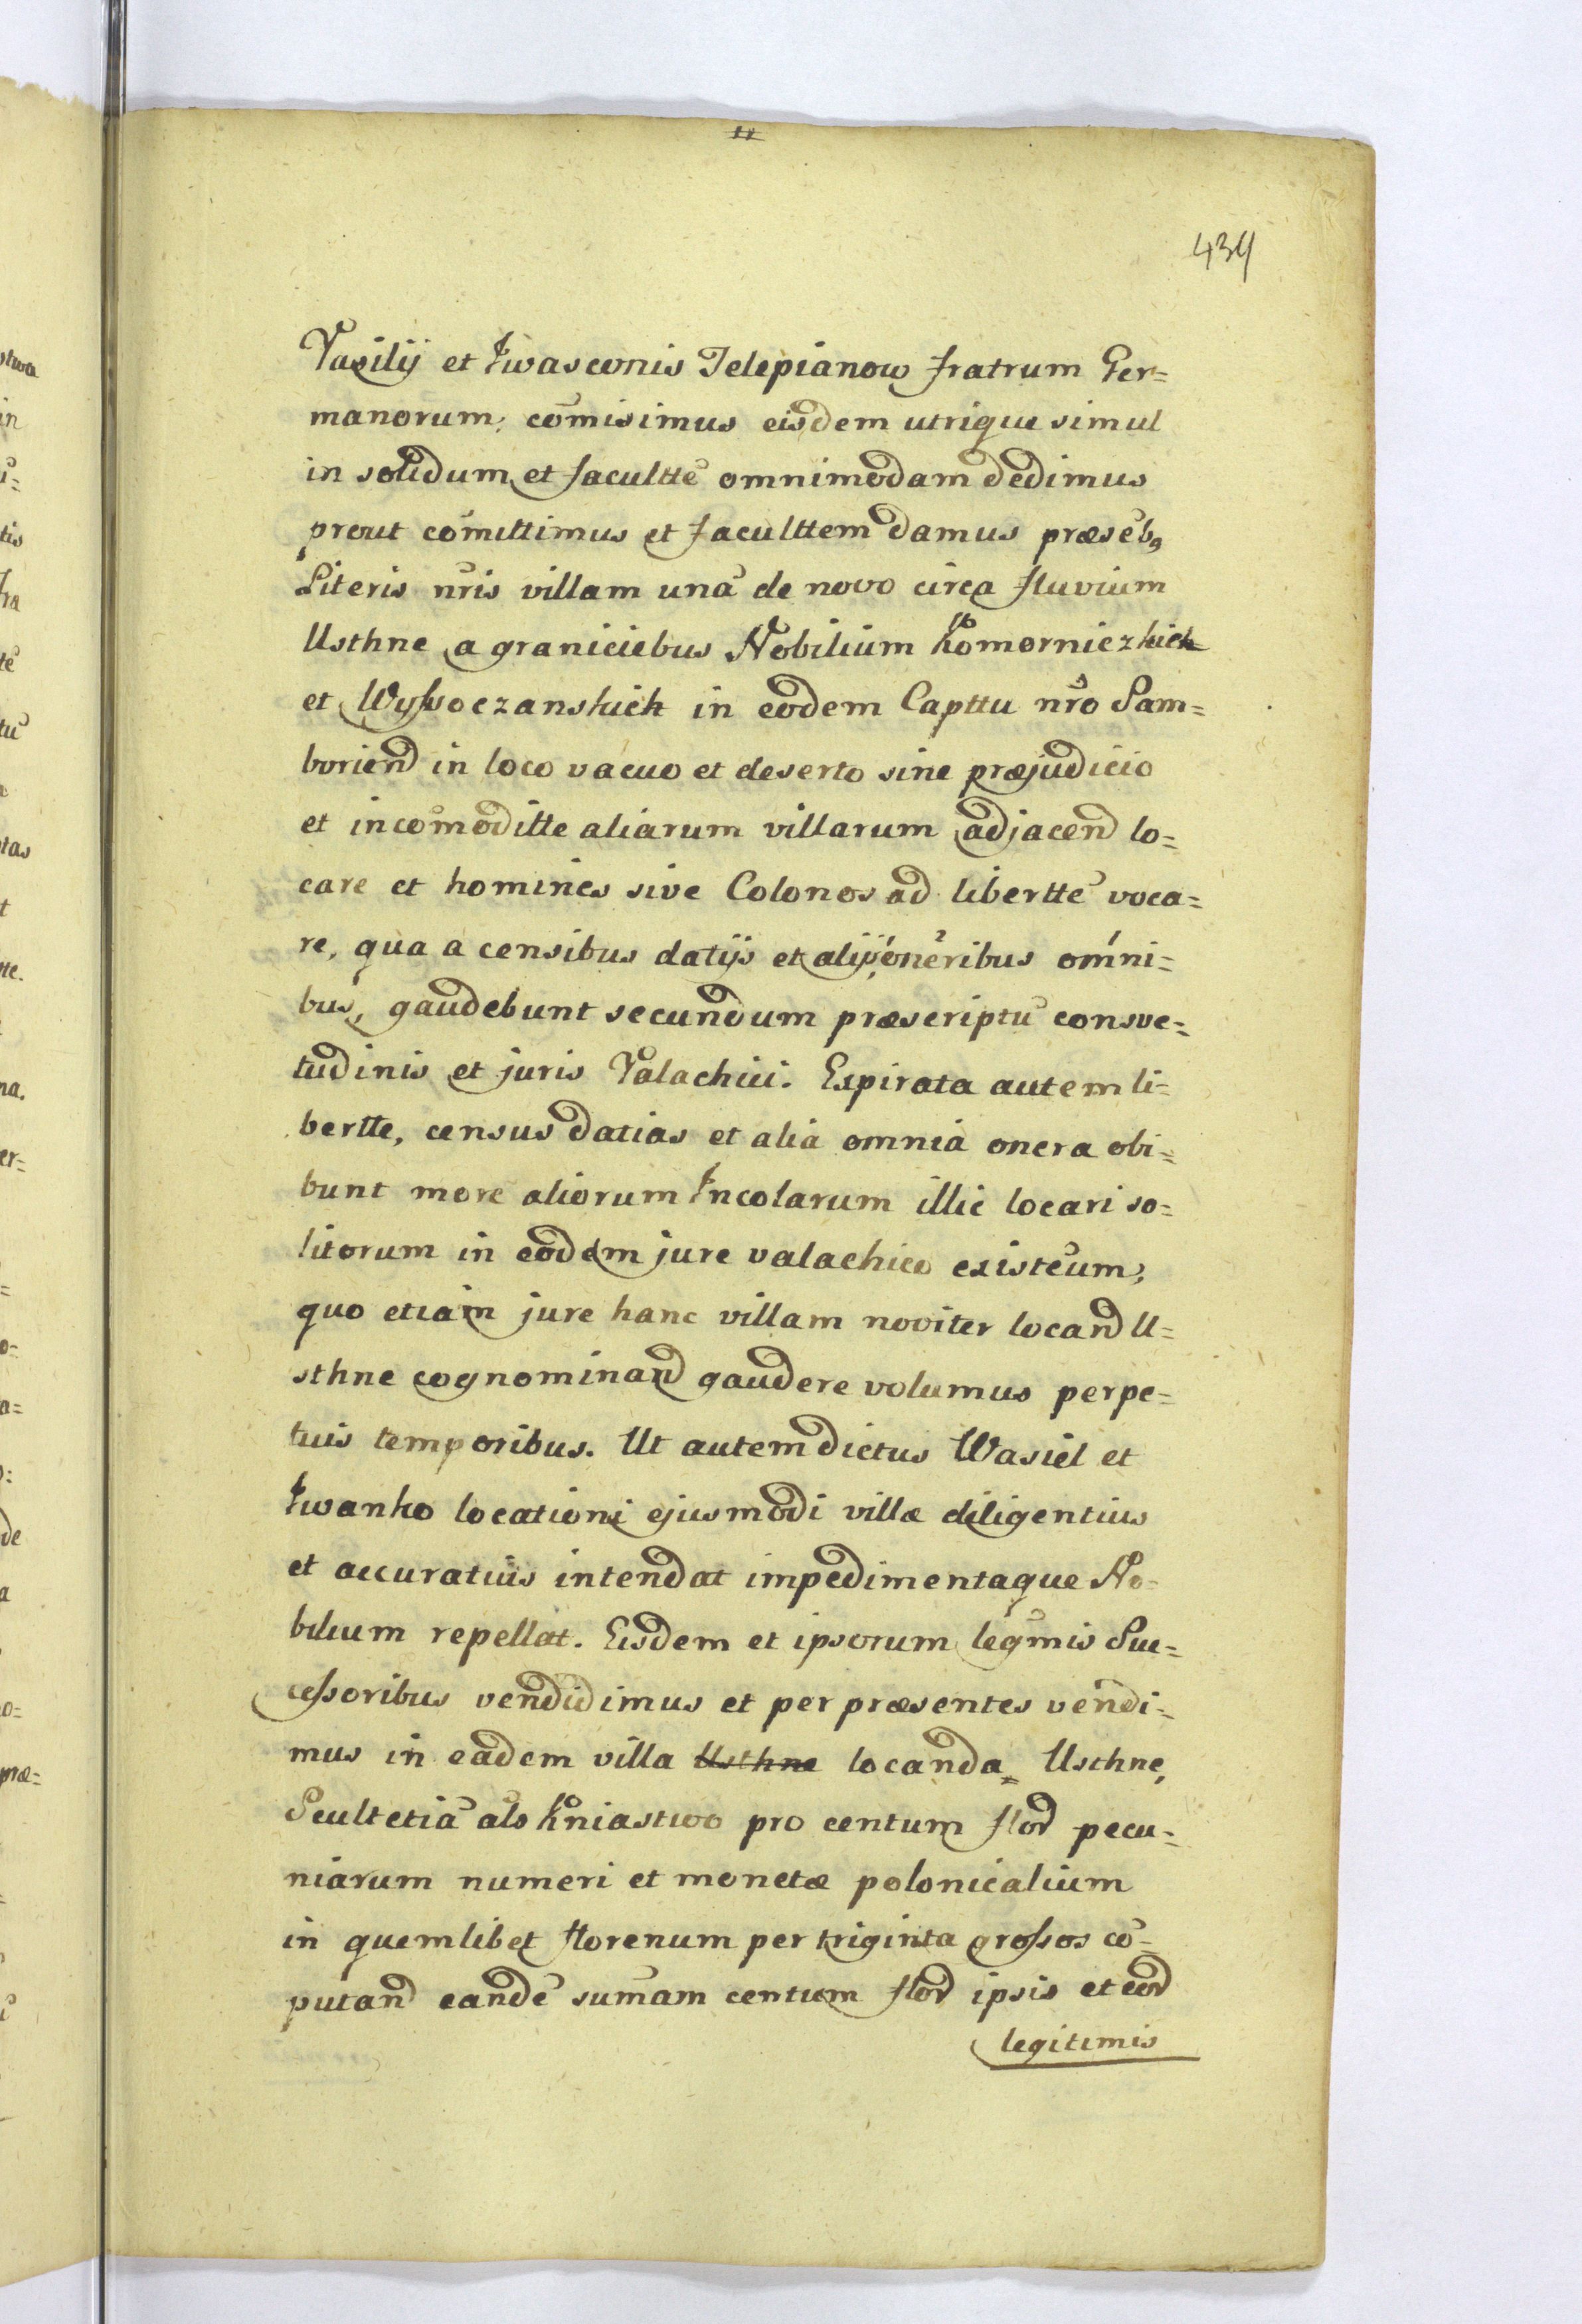 439
Vasilij et Iwasconis Telepianow fratrum Ger=
manorum: com̃isimus eisdem utrique simul
in solidum et facultt̃e omnimodam dedimus
prout com̃ittimus et facultttem damus præsẽbꝫ
Literis nr̃is villam unã de novo circa fluvium
Usthne a graniciebus Nobilium Komorniczkich
et Wyssoczanskich in eodem Capttu nr̃o Sam=
boriend in loco vacuo et deserto sine præjudicio
et incom̃oditte aliarum villarum adjacend lo=
care et homines sive Colonos ad libertt̃e voca=
re, qua a censibus datijs et alijs oneribus omni=
bus, gaudebunt secundum præscriptũ consve=
tudinis et juris Valachici. Expirata autem li=
bertte, census datias et alia omnia onera obi=
bunt more aliorum Incolarum illic locari so=
litorum in eodem jure valachico existẽum,
quo etiam jure hanc villam noviter locand U=
sthne cognominand gaudere volumus perpe=
tuis temporibus. Ut autem dictus Wasiel et
Iwanko locationi ejusmodi villæ diligentius
et accuratius intendat impedimentaque No=
bilium repellat. Eisdem et ipsorum legm̃is Suc=
cessoribus vendidimus et per præsentes vendi=
mus in eadem villa Usthne locanda Usthne,
Scultetiã als Kniastwo pro centum flor pecu=
niarum numeri et monetæ polonicalium
in quemlibet florenum per triginta grossos cõ=
putand eandẽ sum̃am centum flor ipsis et eor
legitimis